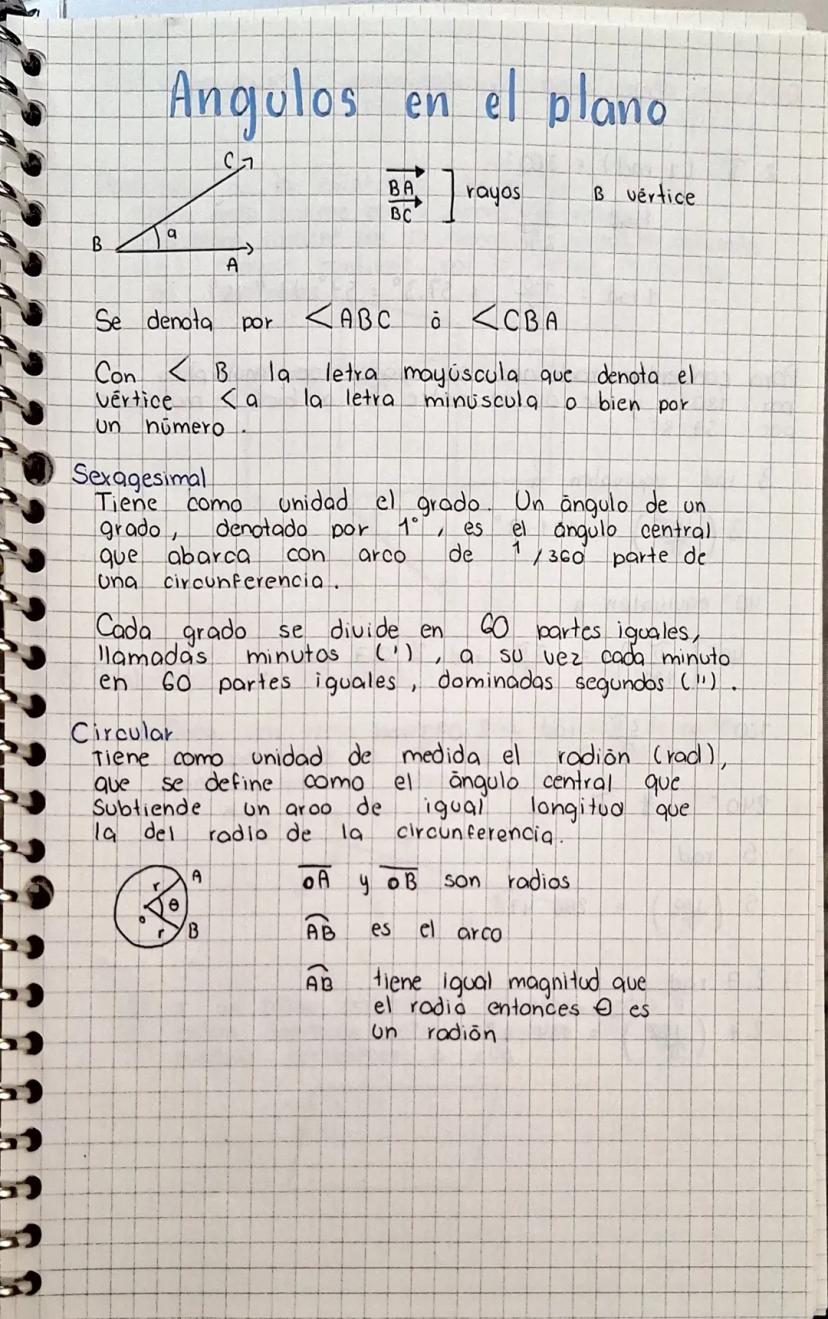 Angulos en el plano
C
B a
A
BA
BC
rayos B vértice
Se denota por <ABC ó <CBA
Con < B la letra mayúscula que denota el
vértice <a la letra minúscula o bien por
un número.
Sexagesimal
Tiene como unidad el grado. Un ángulo de un
grado, denotado por 1°, es el ángulo central
que abarca con arco de 1/360 parte de
una circunferencia.
Cada grado se divide en 60 partes iguales,
llamadas minutos ('), a su vez cada minuto
en 60 partes iguales, dominadas segundos (").
Circular
Tiene como unidad de medida el radián (rad),
que se define como el ángulo central que
subtiende un arco de igual longitud que
la del radio de la circunferencia.
r A
o θ
r B
OA y OB son radios
AB es el arco
AB tiene igual magnitud que
el radio entonces θ es
un radián